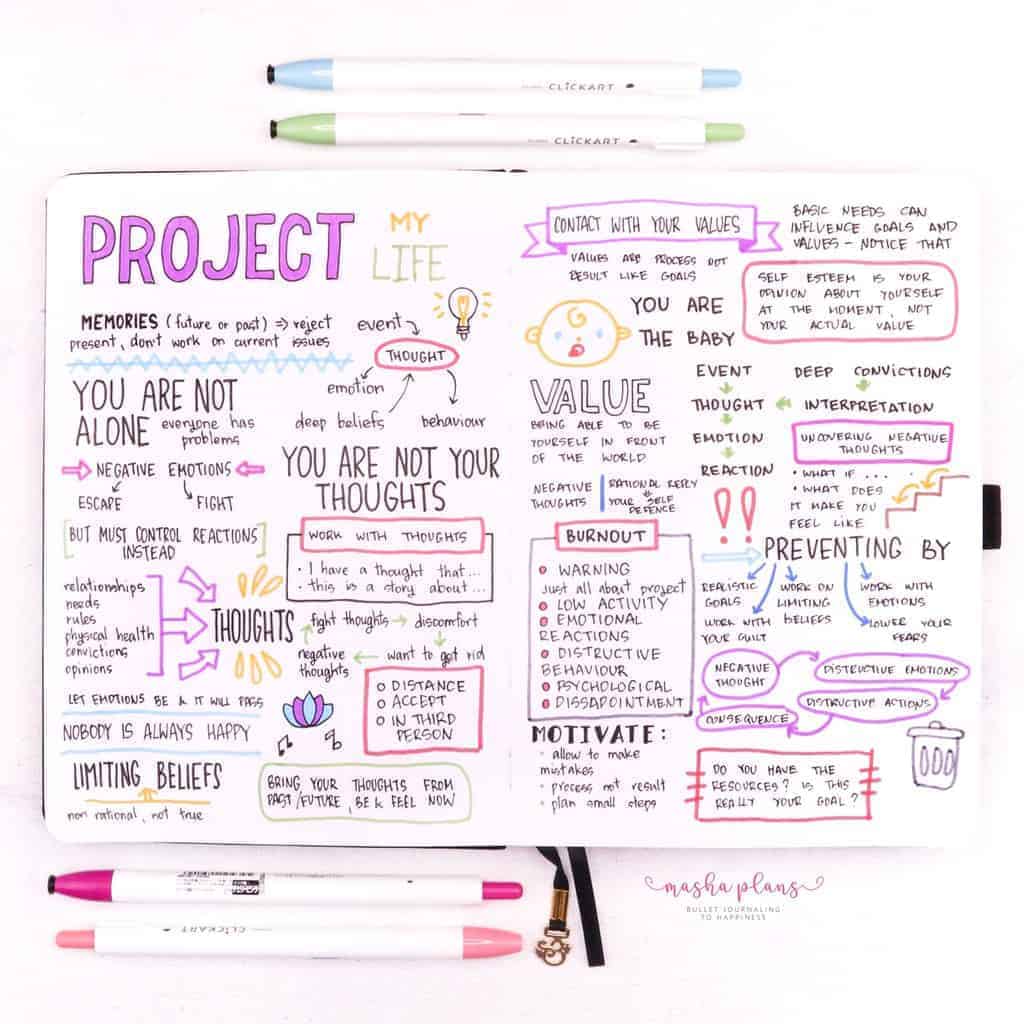 CLICKART
CLICKART
PROJECT MY
LIFE
MEMORIES (future or past) ⇒ reject
present, don't work on current issues
event
THOUGHT
emotion
deep beliefs
behaviour
YOU ARE NOT
ALONE everyone has
problems
NEGATIVE EMOTIONS
ESCAPE
FIGHT
[BUT MUST CONTROL REACTIONS
INSTEAD]
YOU ARE NOT YOUR
THOUGHTS
WORK WITH THOUGHTS
• I have a thought that...
• this is a story about...
relationships
needs
rules
physical health
convictions
opinions
THOUGHTS
fight thoughts → discomfort
negative
thoughts ← want to got rid
DISTANCE
ACCEPT
IN THIRD
PERSON
LET EMOTIONS BE & IT WILL PASS
NOBODY IS ALWAYS HAPPY
LIMITING BELIEFS
non rational, not true
BRING YOUR THOUGHTS FROM
PAST/FUTURE, BE & FEEL NOW
CONTACT WITH YOUR VALUES
VALUES ARE PROCESS NOT
RESULT LIKE GOALS
BASIC NEEDS CAN
INFLUENCE GOALS AND
VALUES - NOTICE THAT
SELF ESTEEM IS YOUR
OPINION ABOUT YOURSELF
AT THE MOMENT, NOT
YOUR ACTUAL VALUE
YOU ARE
THE BABY
VALUE
BEING ABLE TO BE
YOURSELF IN FRONT
OF THE WORLD
NEGATIVE
THOUGHTS
RATIONAL REPLY
YOUR SELF
DEFENCE
EVENT
THOUGHT
EMOTION
REACTION
DEEP CONVICTIONS
INTERPRETATION
UNCOVERING NEGATIVE
THOUGHTS
• WHAT IF ....
• WHAT DOES
IT MAKE YOU
FEEL LIKE
!!
BURNOUT
WARNING
Just all about project
LOW ACTIVITY
EMOTIONAL
REACTIONS
DISTRUCTIVE
BEHAVIOUR
PSYCHOLOGICAL
DISSAPOINTMENT
PREVENTING BY
REALISTIC
GOALS
WORK WITH
YOUR GUILT
WORK ON
LIMITING
BELIEFS
WORK WITH
EMOTIONS
LOWER YOUR
FEARS
NEGATIVE
THOUGHT
DISTRUCTIVE EMOTIONS
DISTRUCTIVE ACTIONS
CONSEQUENCE
MOTIVATE:
• allow to make
mistakes
• process not result
• plan small steps
DO YOU HAVE THE
RESOURCES? IS THIS
REALLY YOUR GOAL?
CLICKART
masha plans
BULLET JOURNALING
TO HAPPINESS